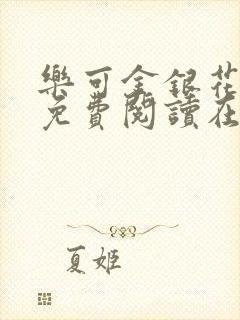 樂可金銀花
免費閱讀在
夏姬